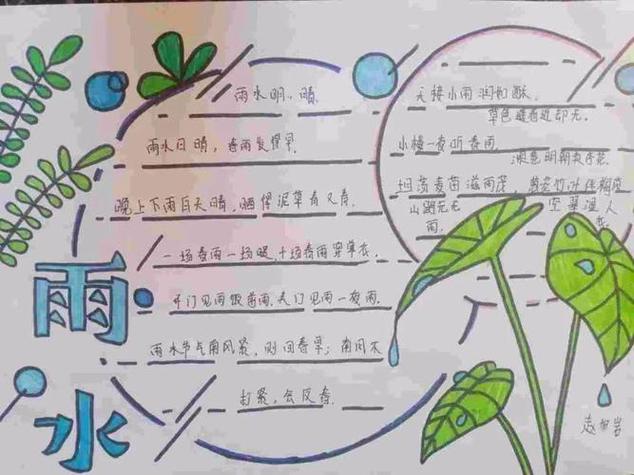 雨水
雨水明，晴
雨水日晴，春雨发得早
晚上下雨白天晴，晒得泥草青又青
一场春雨一场暖，十场春雨穿单衣
开门见雨饭前雨，关门见雨一夜雨
雨水节气南风紧，则回春旱；南风不
打紧，会反春
天街小雨润如酥，
草色遥看近却无。
小楼一夜听春雨，
深巷明朝卖杏花。
山路元无
雨，
空翠湿人
衣